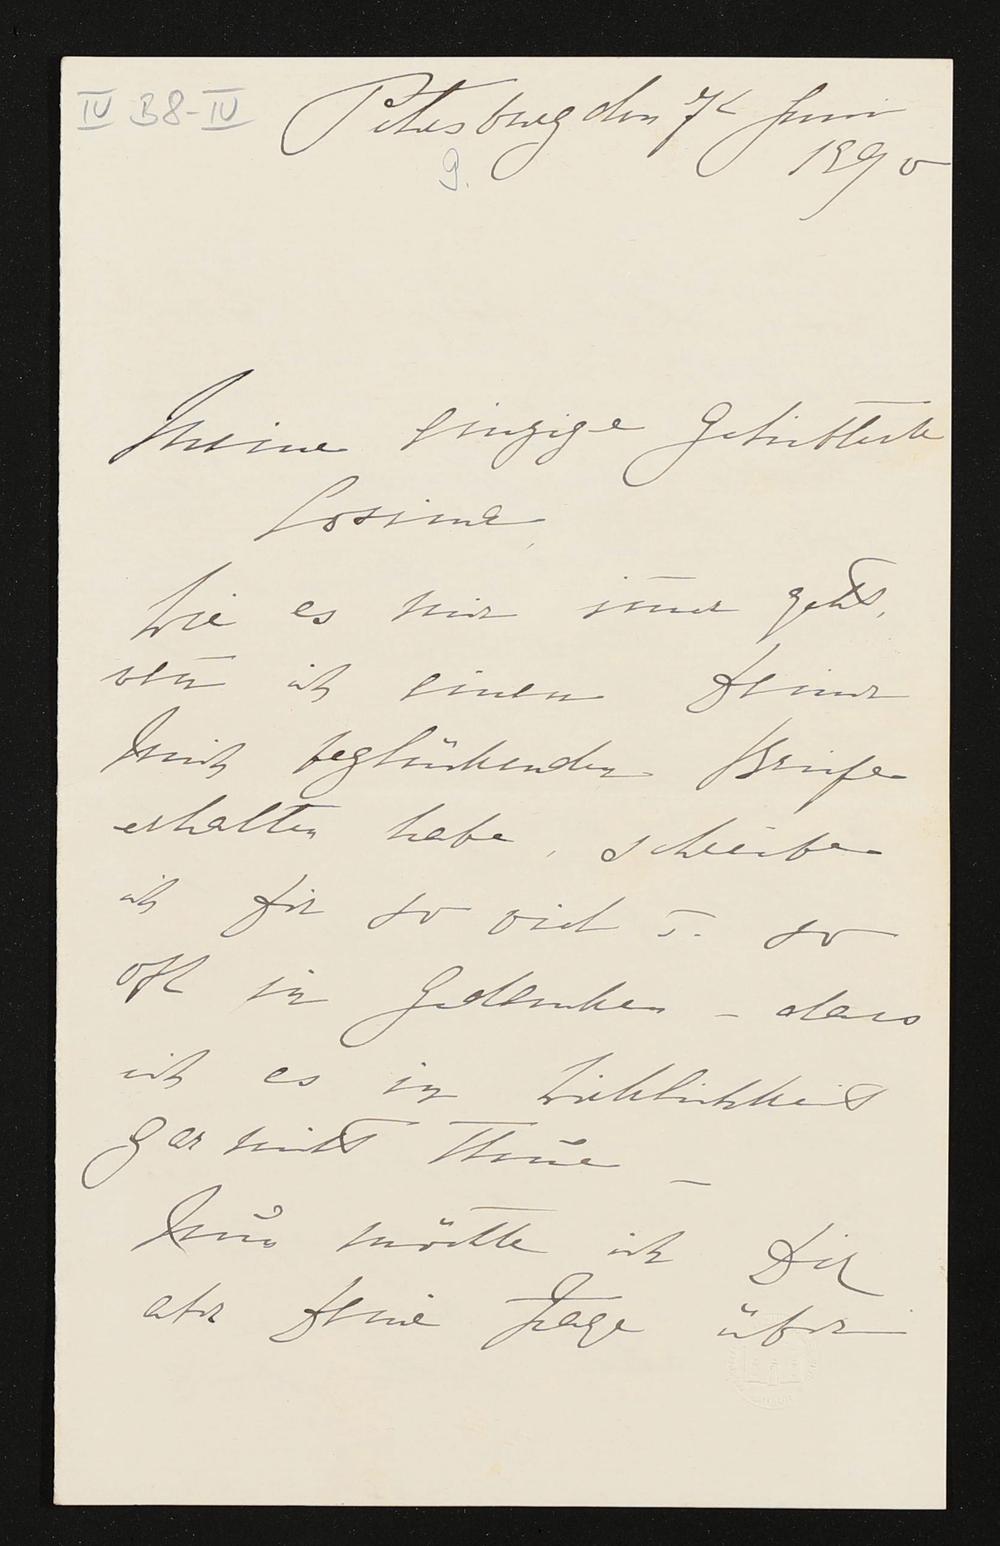 IV B8-IV
Petersburg den 7t Juni
9.
1890
Meine einzige Geliebteste
Cosima,
Wie es mir im̅er geht,
wen̅ ich einen Deiner
mich beglückenden Briefe
erhalten habe, schreibe
ich Dir so viel u. so
oft in Gedanken – dass
ich es in Wirklichkeit
gar nicht thue –
Nun möchte ich Dir
aber Deine Frage über